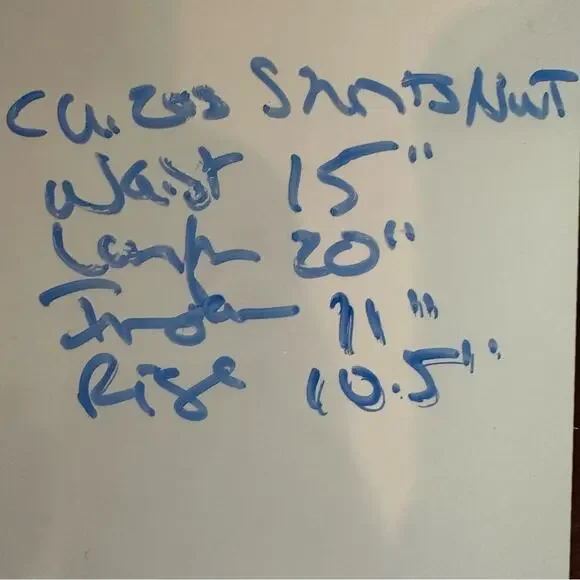 Shorts NWT
Waist 15"
Length 20"
Inseam 11"
Rise 10.5"